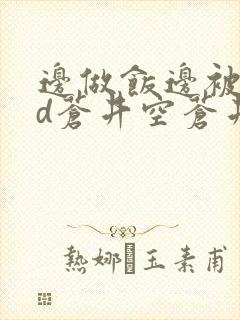 邊做飯邊被
d蒼井空蒼井
熱娜·玉素甫